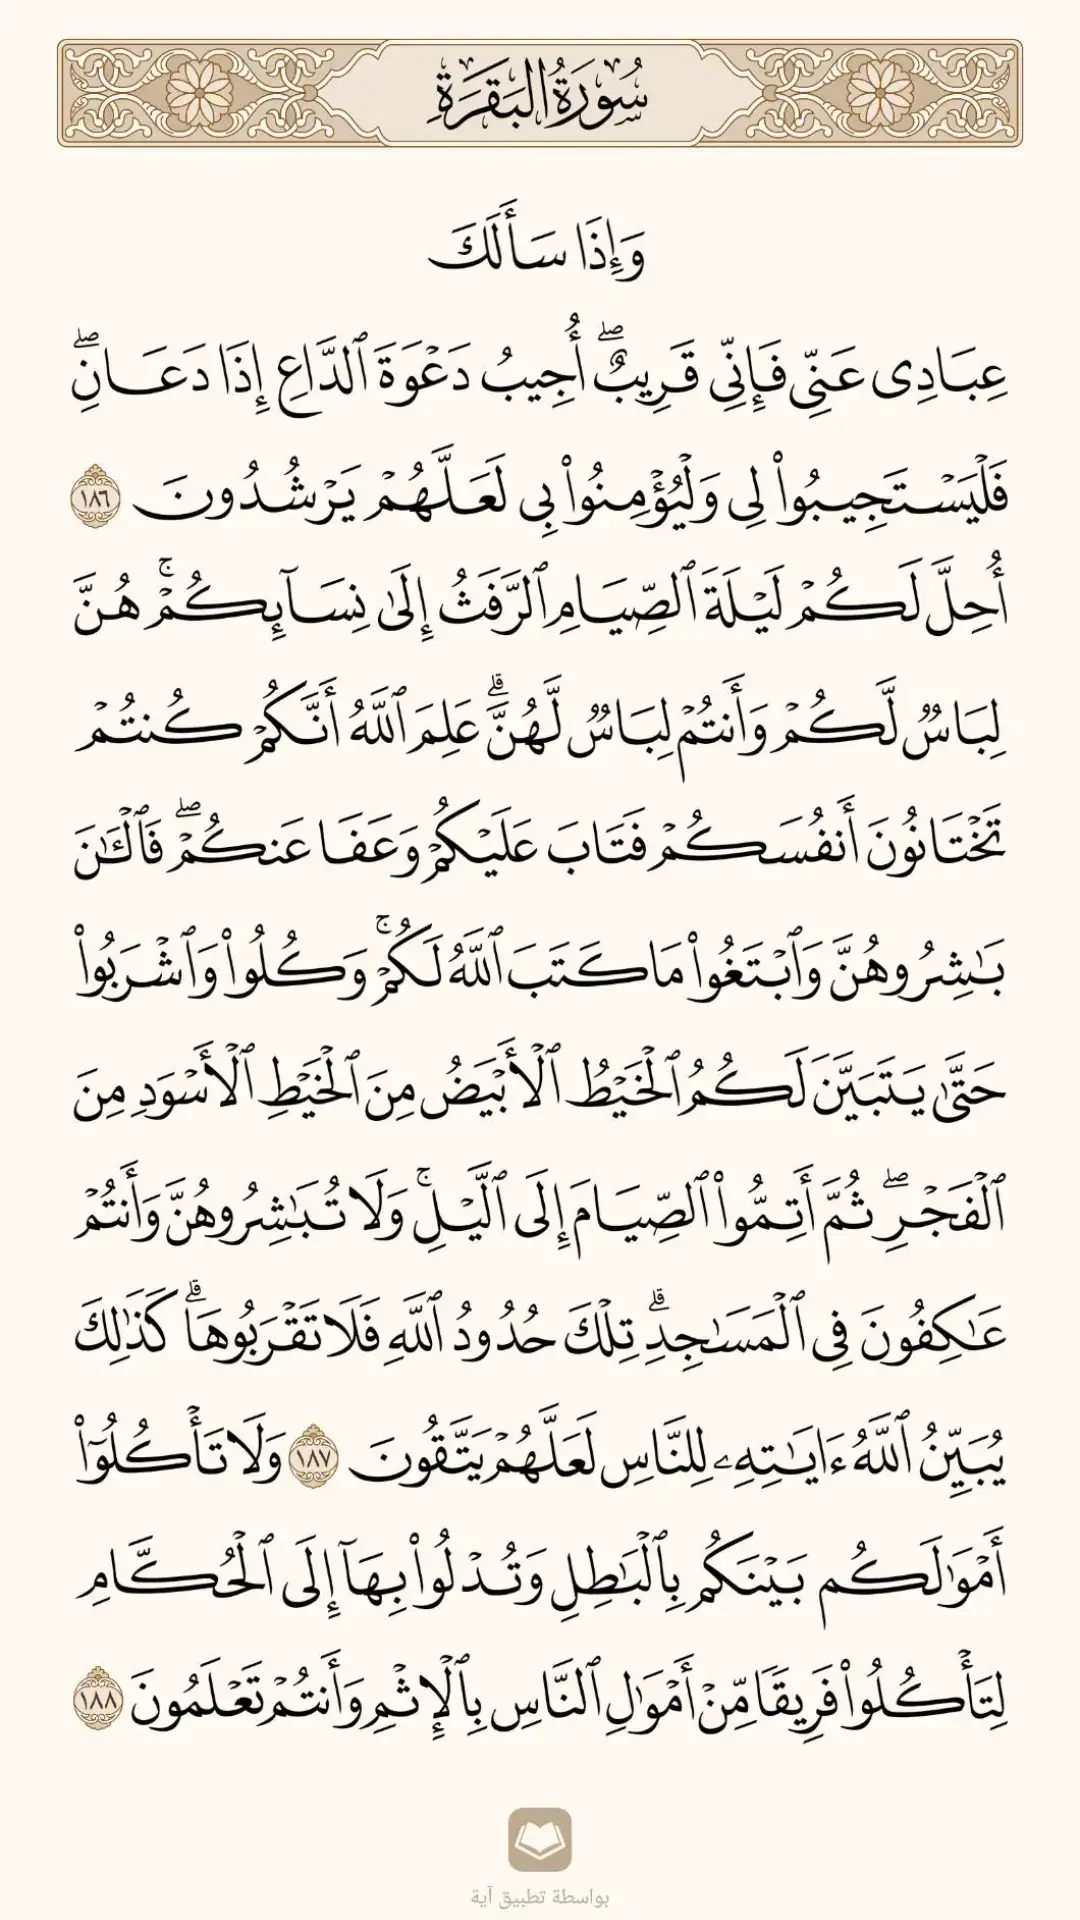 سُورَةُ البَقَرَةِ
وَإِذَا سَأَلَكَ
عِبَادِى عَنِّى فَإِنِّى قَرِيبٌۖ أُجِيبُ دَعۡوَةَ ٱلدَّاعِ إِذَا دَعَانِۖ
فَلۡيَسۡتَجِيبُواْ لِى وَلۡيُؤۡمِنُواْ بِى لَعَلَّهُمۡ يَرۡشُدُونَ ١٨٦
أُحِلَّ لَكُمۡ لَيۡلَةَ ٱلصِّيَامِ ٱلرَّفَثُ إِلَىٰ نِسَآئِكُمۡۚ هُنَّ
لِبَاسٞ لَّكُمۡ وَأَنتُمۡ لِبَاسٞ لَّهُنَّۗ عَلِمَ ٱللَّهُ أَنَّكُمۡ كُنتُمۡ
تَخۡتَانُونَ أَنفُسَكُمۡ فَتَابَ عَلَيۡكُمۡ وَعَفَا عَنكُمۡۖ فَٱلۡـَٰٔنَ
بَٰشِرُوهُنَّ وَٱبۡتَغُواْ مَا كَتَبَ ٱللَّهُ لَكُمۡۚ وَكُلُواْ وَٱشۡرَبُواْ
حَتَّىٰ يَتَبَيَّنَ لَكُمُ ٱلۡخَيۡطُ ٱلۡأَبۡيَضُ مِنَ ٱلۡخَيۡطِ ٱلۡأَسۡوَدِ مِنَ
ٱلۡفَجۡرِۖ ثُمَّ أَتِمُّواْ ٱلصِّيَامَ إِلَى ٱلَّيۡلِۚ وَلَا تُبَٰشِرُوهُنَّ وَأَنتُمۡ
عَٰكِفُونَ فِى ٱلۡمَسَٰجِدِۗ تِلۡكَ حُدُودُ ٱللَّهِ فَلَا تَقۡرَبُوهَاۗ كَذَٰلِكَ
يُبَيِّنُ ٱللَّهُ ءَايَٰتِهِۦ لِلنَّاسِ لَعَلَّهُمۡ يَتَّقُونَ ١٨٧ وَلَا تَأۡكُلُوٓاْ
أَمۡوَٰلَكُم بَيۡنَكُم بِٱلۡبَٰطِلِ وَتُدۡلُواْ بِهَآ إِلَى ٱلۡحُكَّامِ
لِتَأۡكُلُواْ فَرِيقٗا مِّنۡ أَمۡوَٰلِ ٱلنَّاسِ بِٱلۡإِثۡمِ وَأَنتُمۡ تَعۡلَمُونَ ١٨٨
بواسطة تطبيق آية